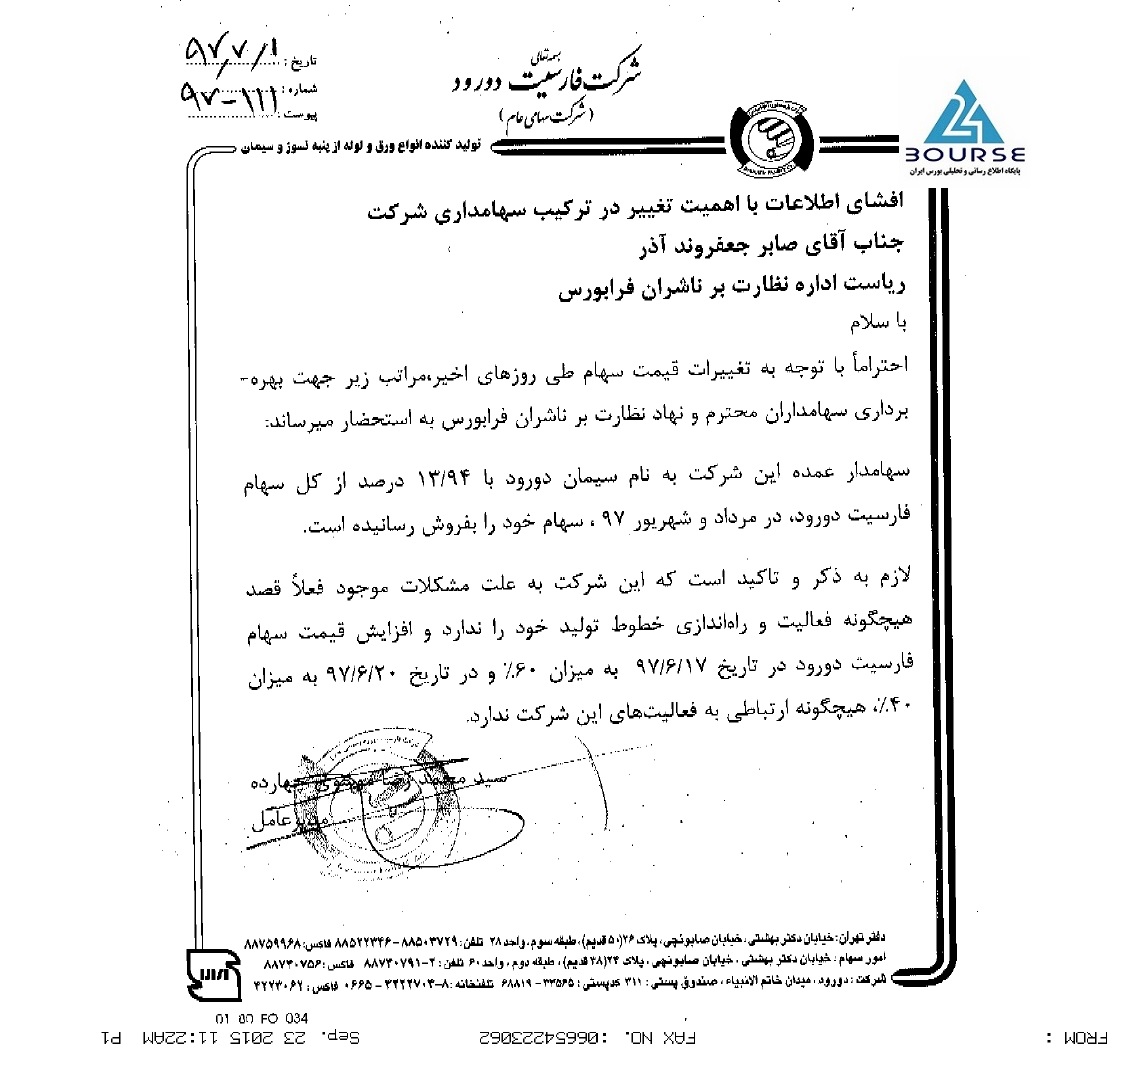 بسمه تعالی
شرکت فارسیت دورود
(شرکت سهامی عام)
تاریخ : ۹۷/۷/۱
شماره : ۹۷-۱۱۱
پیوست :
تولید کننده انواع ورق و لوله از پنبه نسوز و سیمان
24
BOURSE
پایگاه اطلاع رسانی و تحلیلی بورس ایران
افشای اطلاعات با اهمیت تغییر در ترکیب سهامداری شرکت
جناب آقای صابر جعفروند آذر
ریاست اداره نظارت بر ناشران فرابورس
با سلام
احتراماً با توجه به تغییرات قیمت سهام طی روزهای اخیر،مراتب زیر جهت بهره-
برداری سهامداران محترم و نهاد نظارت بر ناشران فرابورس به استحضار میرساند:
سهامدار عمده این شرکت به نام سیمان دورود با ۱۳/۹۴ درصد از کل سهام
فارسیت دورود، در مرداد و شهریور ۹۷ ، سهام خود را بفروش رسانیده است.
لازم به ذکر و تاکید است که این شرکت به علت مشکلات موجود فعلاً قصد
هیچگونه فعالیت و راه‌اندازی خطوط تولید خود را ندارد و افزایش قیمت سهام
فارسیت دورود در تاریخ ۹۷/۶/۱۷ به میزان ۶۰٪ و در تاریخ ۹۷/۶/۲۰ به میزان
۴۰٪، هیچگونه ارتباطی به فعالیت‌های این شرکت ندارد.
سید محمد رضا چهارده
مدیرعامل
دفتر تهران: خیابان دکتر بهشتی، خیابان صابونچی، پلاک ۲۶(۵۰ قدیم)، طبقه سوم، واحد ۲۸ تلفن: ۸۸۵۰۳۷۲۹-۸۸۵۲۲۳۴۶ فاکس: ۸۸۷۵۹۹۶۸
امور سهام : خیابان دکتر بهشتی ، خیابان صابونچی ، پلاک ۲۴(۳۸ قدیم) ، طبقه دوم ، واحد ۶۰ تلفن : ۲-۸۸۷۳۰۷۹۱ فاکس : ۸۸۷۳۰۷۵۶
شرکت : دورود ، میدان خاتم الانبیاء ، صندوق پستی : ۳۱۱ کدپستی : ۳۳۵۶۵-۶۸۸۱۹ تلفنخانه : ۸-۳۲۲۲۷۰۳-۰۶۶۵ فاکس : ۳۲۲۳۰۶۲
01 80 FO 034
FROM : FAX NO. :06654223062 Sep. 23 2015 11:22AM P1